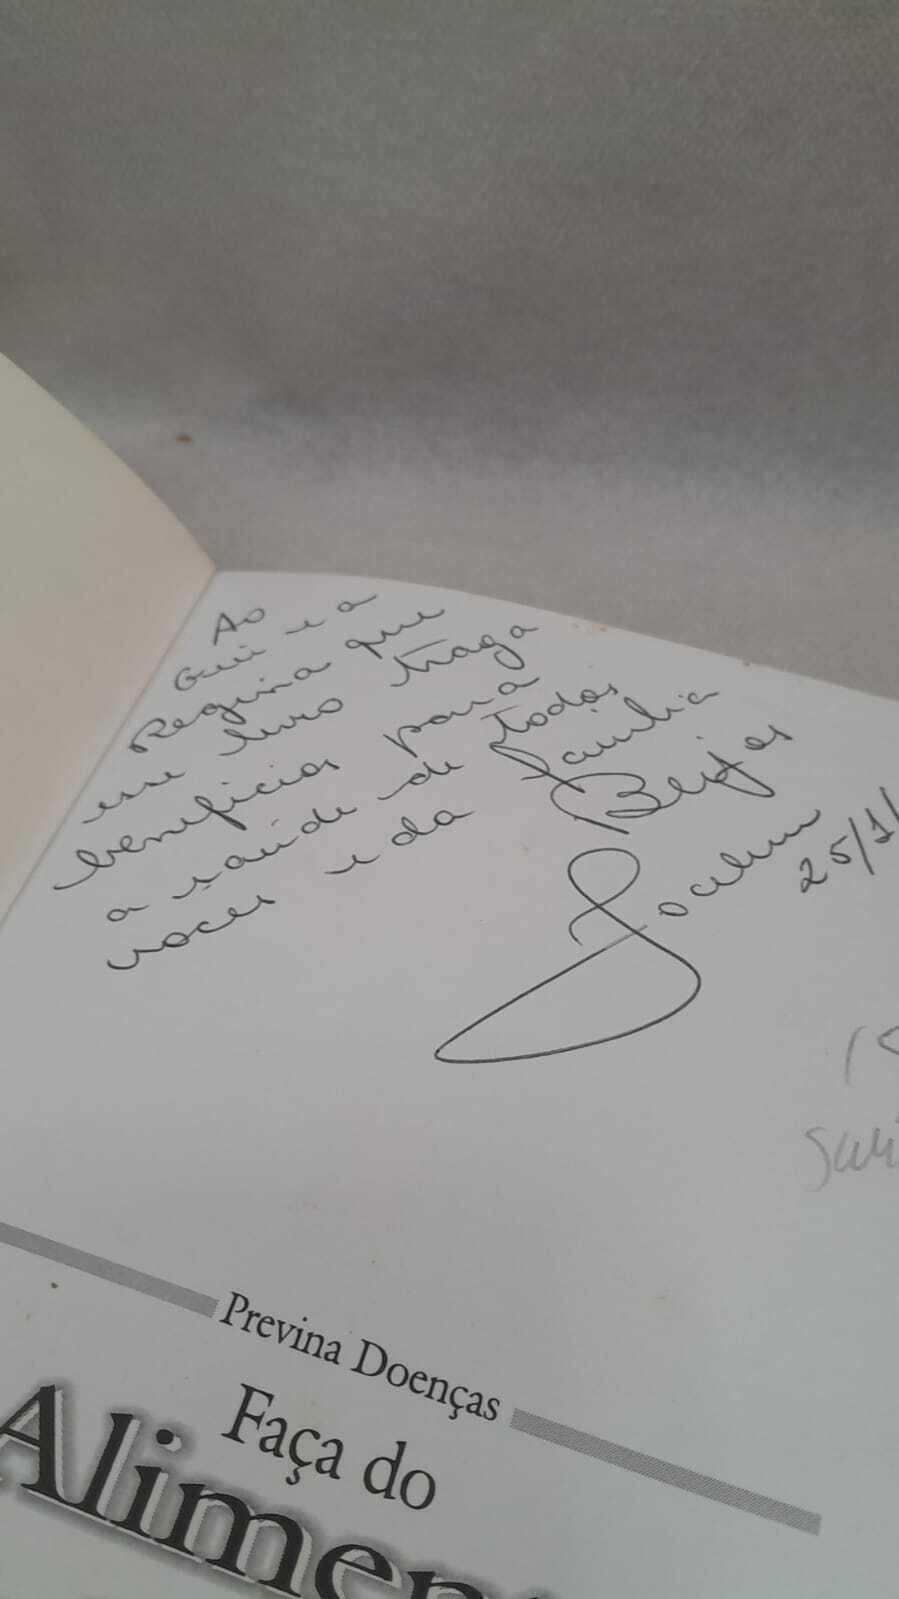 Ao
Gui e a
Regina que
esse livro traga
benefícios para
a saúde de todos
voces e da família
Beijos
25/1/
Previna Doenças
Faça do
Alimen